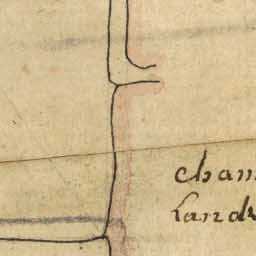 cham
Land